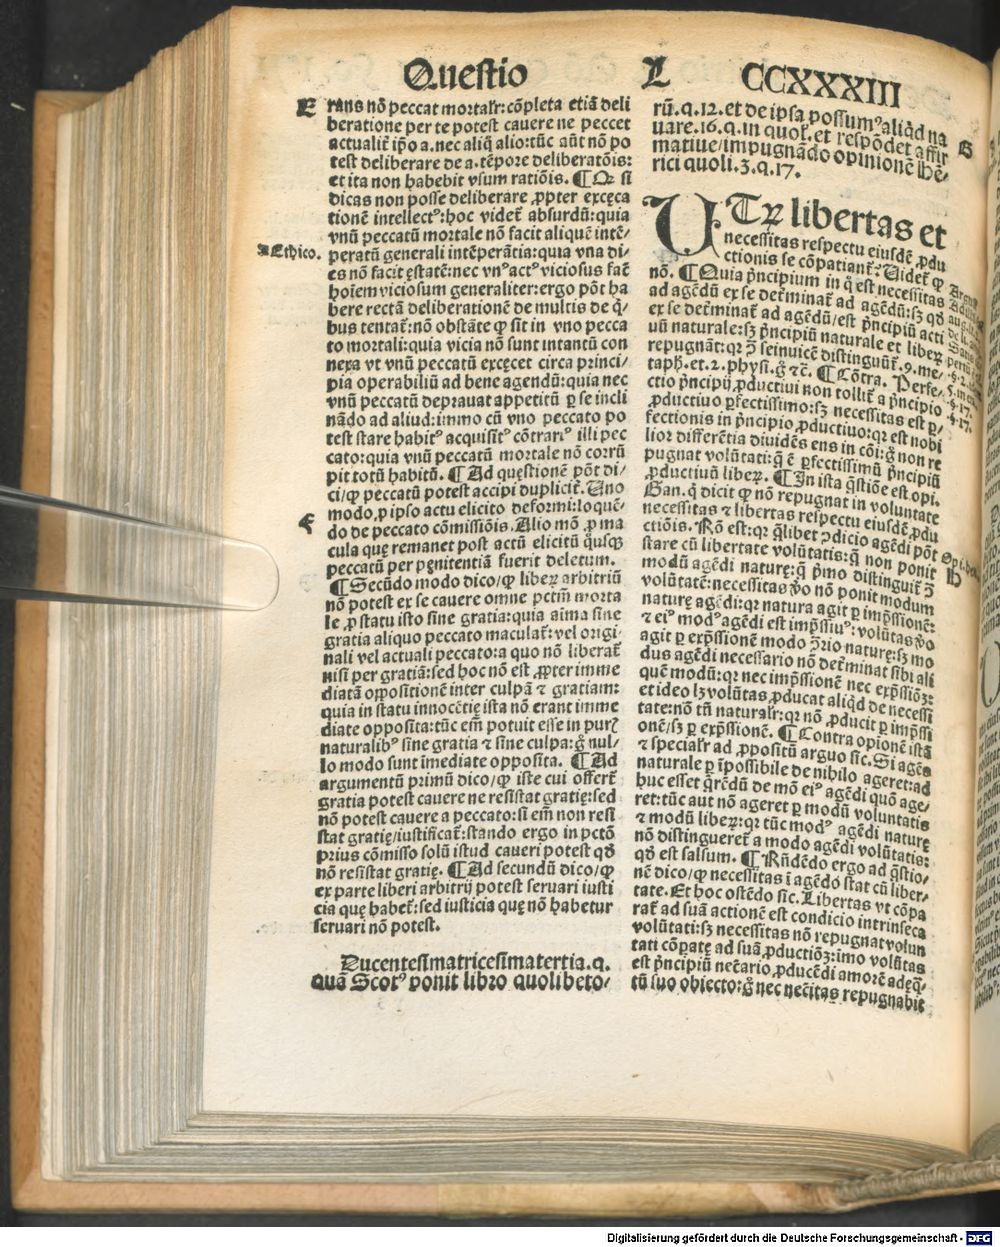 Questio L CCXXXIII
E
rans nō peccat mortalr̄: cōpleta etiā deli
beratione per te potest cauere ne peccet
actualit̄ ip̄o a. nec aliq̄ alio: tūc aūt nō po
test deliberare de a. tēpore deliberatōis:
et ita non habebit vsum ratiōis. ¶ Qꝛ si
dicas non posse deliberare ꝓpter excęca
tionē intellectꝰ: hoc videt̄ absurdū: quia
vnū peccatū mortale nō facit aliquē intē⸗
peratū generali intēperātia: quia vna di⸗
es nō facit ęstatē: nec vnꝰ actꝰ viciosus fac̄
hoīem viciosum generaliter: ergo pōt ha
bere rectā deliberationē de multis de q̄⸗
bus tentat̄: nō obstāte ꝙ sit in vno pecca
to mortali: quia vicia nō sunt intantū con
nexa vt vnū peccatū excęcet circa princi⸗
pia operabiliū ad bene agendū: quia nec
vnū peccatū deprauat appetitū ꝑ se incli
nādo ad aliud: immo cū vno peccato po
test stare habitꝰ acquisit̄ꝰ cōtrariꝰ illi pec
cato: quia vnū peccatū mortale nō corrū
pit totū habitū. ¶ Ad quęstionē pōt di⸗
ci/ꝙ peccatū potest accipi duplicit̄. Uno
modo ꝓ ipso actu elicito deformi: loquē⸗
do de peccato cōmissiōis. Alio mō ꝓ ma
cula quę remanet post actū elicitū q̄usqꝫ
peccatū per pęnitentiā fuerit deletum.
¶ Secūdo modo dico/ꝙ liberꝫ arbitriū
nō potest ex se cauere omne pctm̄ morta
le ꝓ statu isto sine gratia: quia aīma sine
gratia aliquo peccato maculat̄: vel origi⸗
nali vel actuali peccato: a quo nō liberat̄
nisi per gratiā: sed hoc nō est ꝓpter imme
diatā oppositionē inter culpā ⁊ gratiam:
quia in statu innocētię ista nō erant imme
diate opposita: tūc em̄ potuit esse in purꝭ
naturalibꝰ sine gratia ⁊ sine culpa: g̊ nul⸗
lo modo sunt īmediate opposita. ¶ Ad
argumentū primū dico/ꝙ iste cui offert̄
gratia potest cauere ne resistat gratię: sed
nō potest cauere a peccato: si em̄ non resi
stat gratię/iustificat̄: stando ergo in pctō
prius cōmisso solū istud caueri potest qđ
nō resistat gratię. ¶ Ad secundū dico/ꝙ
ex parte liberi arbitrij potest seruari iusti
cia quę habet̄: sed iusticia quę nō habetur
seruari nō potest.
Ducentesimatricesimatertia. q.
quā Scotꝰ ponit libro quolibeto⸗
Ethico.
F
rū. q. 12. et de ipsa possumꝰ aliqđ na
uare. 16. q. in quol̄. et respōdet affir
matiue/impugnādo opinionē Hē⸗
rici quoli. 3. q. 17.
G
UTꝝ libertas et
necessitas respectu eiusdē ꝓdu
ctionis se cōpatiant̄? Uidet̄ ꝙ
nō. ¶ Quia p̄ncipium in q̄ est necessitas
ad agēdū ex se det̄minat̄ ad agēdū: sꝫ qđ
ex se det̄minat̄ ad agēdū/est p̄ncipiū acti
uū naturale: sꝫ p̄ncipiū naturale et liberꝫ
repugnāt: qꝛ ꝯ̄ seinuicē distinguūt̄. 9. me⸗
taph. et. 2. physi. g̊ ⁊c̄. ¶ Cōtra. Perfe⸗
ctio p̄ncipij ꝓductiui non tollit̄ a p̄ncipio
ꝓductiuo ꝑfectissimo: sꝫ necessitas est ꝑ⸗
fectionis in p̄ncipio ꝓductiuo: qꝛ est nobi
lior differētia diuidēs ens in cōi: g̊ non re
pugnat volūtati: q̄ ē ꝑfectissimū p̄ncipiū
ꝓductiuū liberꝫ. ¶ In ista q̄stiōe est opi.
Gan. q̄ dicit ꝙ nō repugnat in voluntate
necessitas ⁊ libertas respectu eiusdē ꝓdu
ctiōis. Rō est: qꝛ q̄libet ꝯdicio agēdi pōt
stare cū libertate volūtatis: q̄ non ponit
modū agēdi naturę: q̄ p̄mo distinguit̄ ꝯ̄
volūtatē: necessitas v̊o nō ponit modum
naturę agēdi: qꝛ natura agit ꝑ imp̄ssionē:
⁊ eiꝰ modꝰ agēdi est imp̄ssiuꝰ: volūtas v̊o
agit ꝑ exp̄ssionē modo ꝯ̄rio naturę: sꝫ mo
dus agēdi necessario nō det̄minat sibi ali
quē modū: qꝛ nec imp̄ssionē nec exp̄ssiōꝫ:
et ideo lꝫ volūtas ꝓducat aliqđ de necessi
tate: nō tn̄ naturalr̄: qꝛ nō ꝓducit ꝑ imp̄ssi
onē/sꝫ ꝑ exp̄ssionē. ¶ Contra opionē istā
⁊ specialr̄ ad ꝓpositū arguo sic. Si agēs
naturale ꝑ īpossibile de nihilo ageret: ad
huc esset q̄rēdū de mō eiꝰ agēdi quō age⸗
ret: tūc aut nō ageret ꝑ modū voluntatis
⁊ modū liberꝫ: qꝛ tūc modꝰ agēdi naturę
nō distingueret̄ a modo agēdi volūtatis:
qđ est falsum. ¶ Rn̄dēdo ergo ad q̄stio⸗
nē dico/ꝙ necessitas ī agēdo stat cū liber⸗
tate. Et hoc ostēdo sic. Libertas vt cōpa
rat̄ ad suā actionē est condicio intrinseca
volūtati: sꝫ necessitas nō repugnat volun
tati cōpatę ad suā ꝓductiōꝫ: imo volūtas
est p̄ncipiū nec̄ario ꝓducēdi amorē adeq̄⸗
tū suo obiecto: g̊ nec nec̄itas repugnabit
Opi.
H
Digitalisierung gefördert durch die Deutsche Forschungsgemeinschaft - DFG